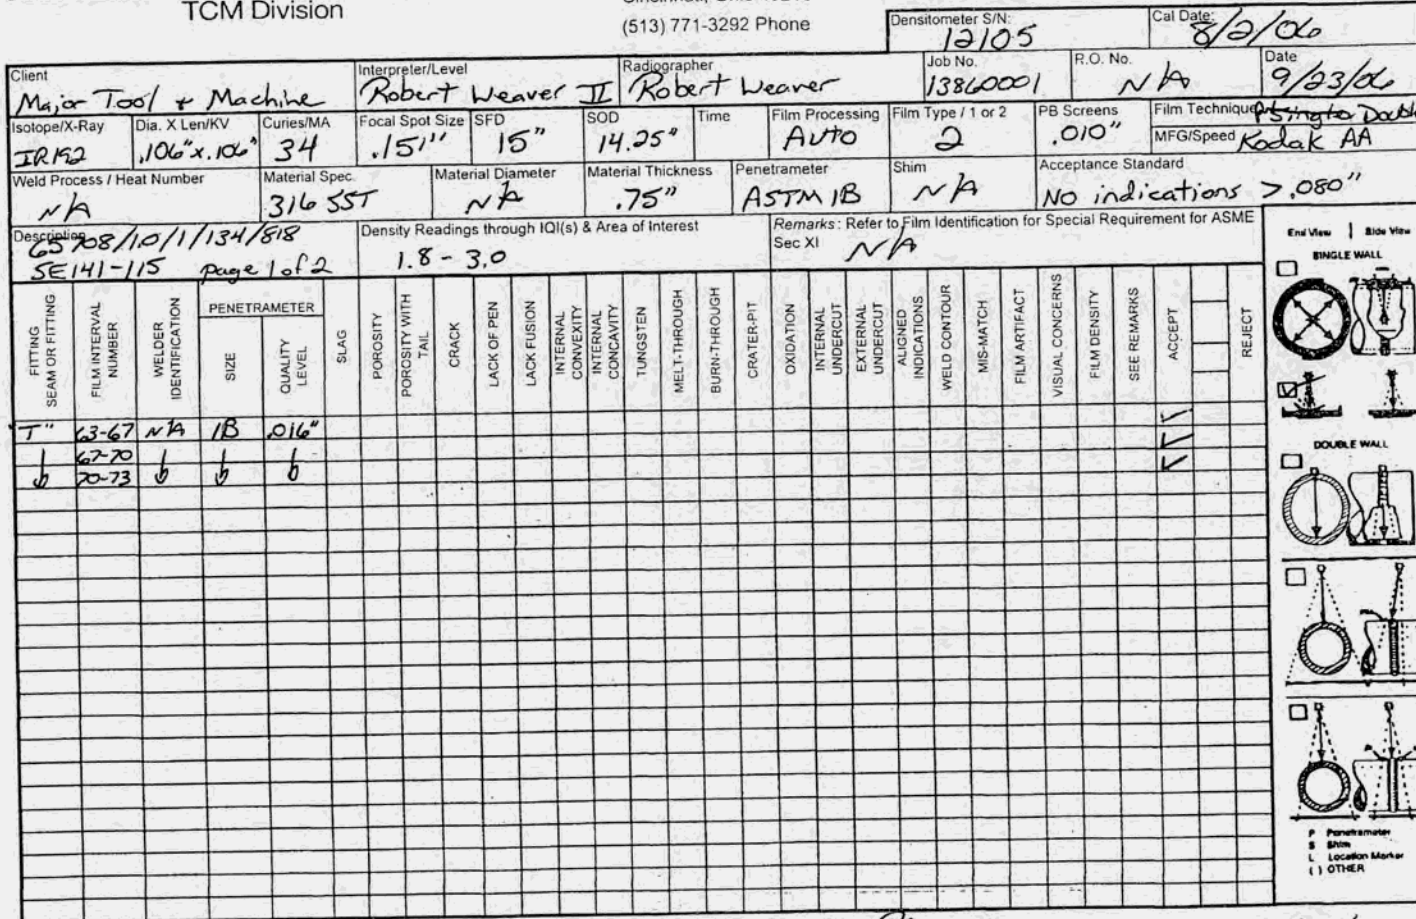 TCM Division
(513) 771-3292 Phone
Densitometer S/N:
12105
Cal Date:
8/2/06
Client
Major Tool + Machine
Interpreter/Level
Robert Weaver II
Radiographer
Robert Weaver
Job No.
13860001
R.O. No.
N/A
Date
9/23/06
Isotope/X-Ray
IR192
Dia. X Len/KV
.106"x.106"
Curies/MA
34
Focal Spot Size
.151"
SFD
15"
SOD
14.25"
Time
Film Processing
Auto
Film Type / 1 or 2
2
PB Screens
.010"
Film Technique
Double
MFG/Speed Kodak AA
Weld Process / Heat Number
N/A
Material Spec
316 SST
Material Diameter
N/A
Material Thickness
.75"
Penetrameter
ASTM 1B
Shim
N/A
Acceptance Standard
No indications > .080"
Description
65708/1.0/1/134/818
SE141-115 page 1 of 2
Density Readings through IQI(s) & Area of Interest
1.8 - 3.0
Remarks: Refer to Film Identification for Special Requirement for ASME
Sec XI
N/A
FITTING
SEAM OR FITTING
FILM INTERVAL
NUMBER
WELDER
IDENTIFICATION
PENETRAMETER
SIZE
QUALITY
LEVEL
SLAG
POROSITY
POROSITY WITH
TAIL
CRACK
LACK OF PEN
LACK FUSION
INTERNAL
CONVEXITY
INTERNAL
CONCAVITY
TUNGSTEN
MELT-THROUGH
BURN-THROUGH
CRATER-PIT
OXIDATION
INTERNAL
UNDERCUT
EXTERNAL
UNDERCUT
ALIGNED
INDICATIONS
WELD CONTOUR
MIS-MATCH
FILM ARTIFACT
VISUAL CONCERNS
FILM DENSITY
SEE REMARKS
ACCEPT
REJECT
T" 63-67 N/A 1B .016"
67-70
70-73
End View | Side View
SINGLE WALL
DOUBLE WALL
P Penetrameter
S Shim
L Location Marker
( ) OTHER